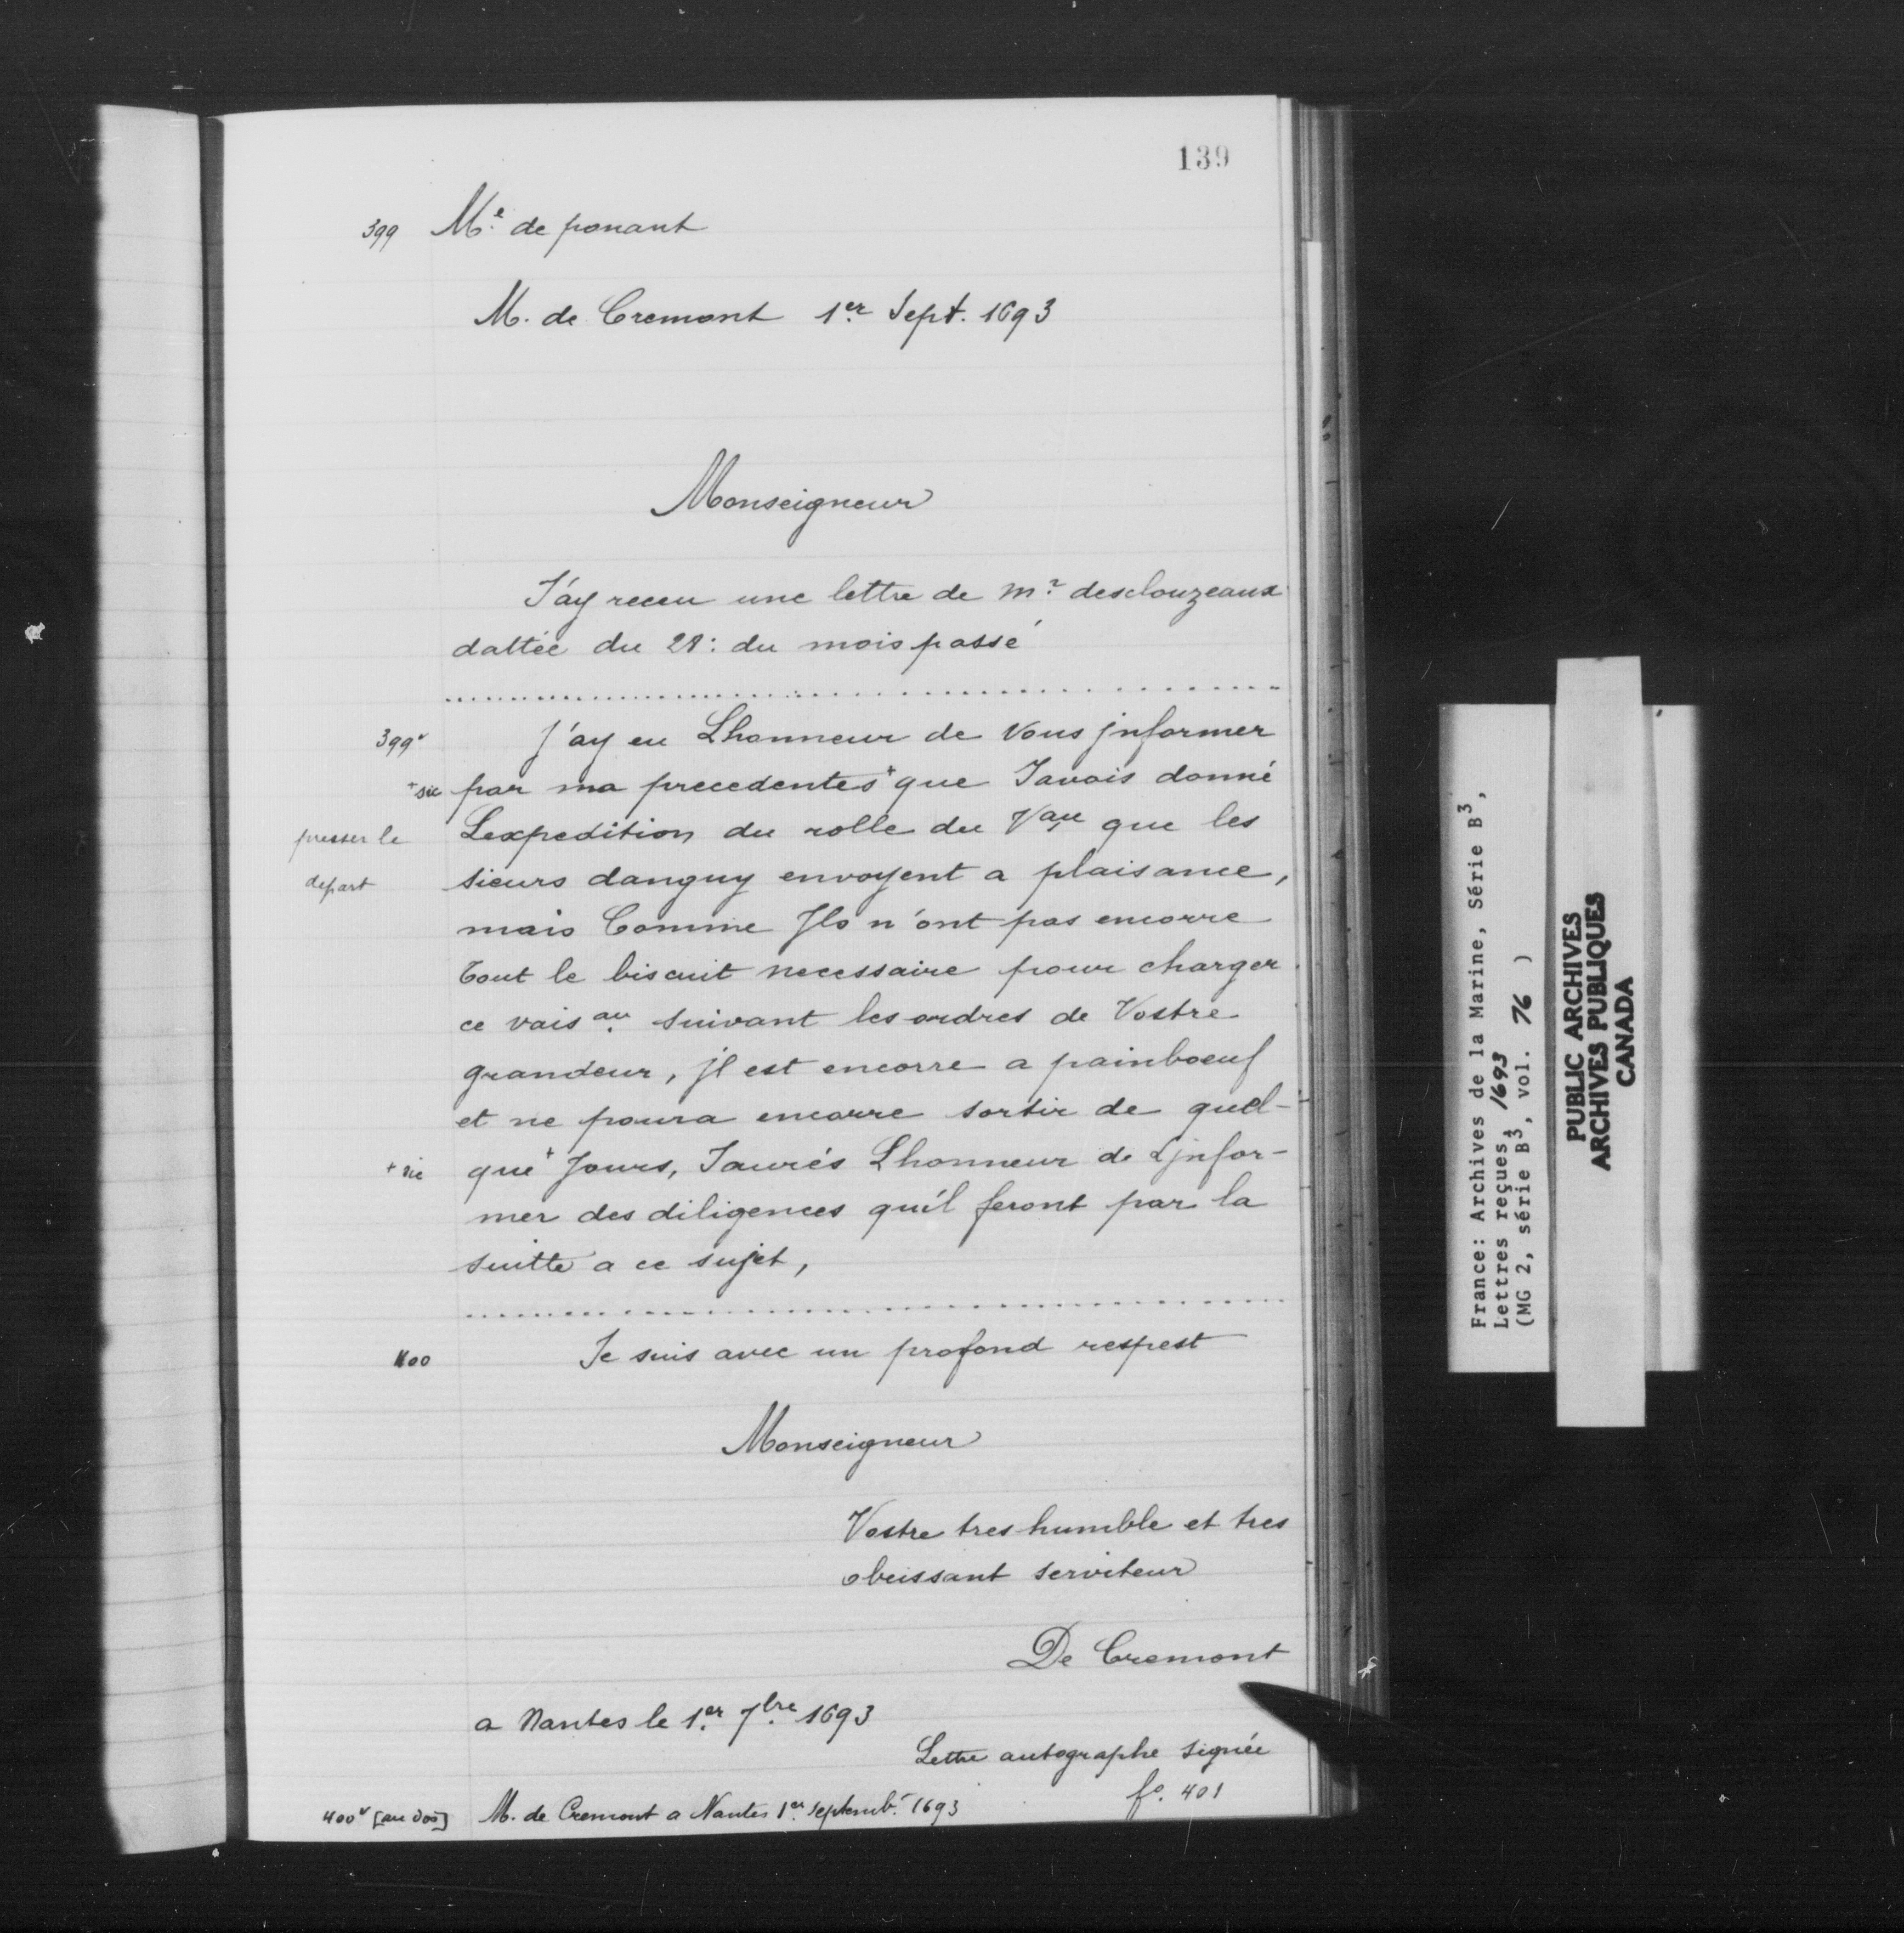 139
399 M.e de ponant
M. de Cremont 1.er Sept. 1693
Monseigneur
J'ay receu une lettre de m.r desclouzeaux
dattée du 28: du mois passé
399v J'ay eu Lhonneur de Vous jnformer
+sic par ma precedentes+ que Javois donné
presser le Lexpedition du rolle du Vau que les
depart sieurs danguy envoyent a plaisance,
mais Comme Jls n'ont pas encorre
tout le biscuit necessaire pour charger
ce vais.au suivant les ordres de Vostre
grandeur, jl est encorre a painboeuf
et ne poura encorre sortir de quel-
+ sic que+ Jours, Jaurés Lhonneur de Ljnfor-
mer des diligences qu'il feront par la
suitte a ce sujet,
400 Je suis avec un profond respest
Monseigneur
Vostre tres humble et tres
obeissant serviteur
De Cremont
a Nantes le 1.er 7.bre 1693
Lettre autographe signée
fo. 401
400v [au dos] M. de Cremont a Nantes 1.er septemb.r 1693
France: Archives de la Marine, Série B3,
Lettres reçues, 1693
(MG 2, série B3, vol. 76 )
PUBLIC ARCHIVES
ARCHIVES PUBLIQUES
CANADA